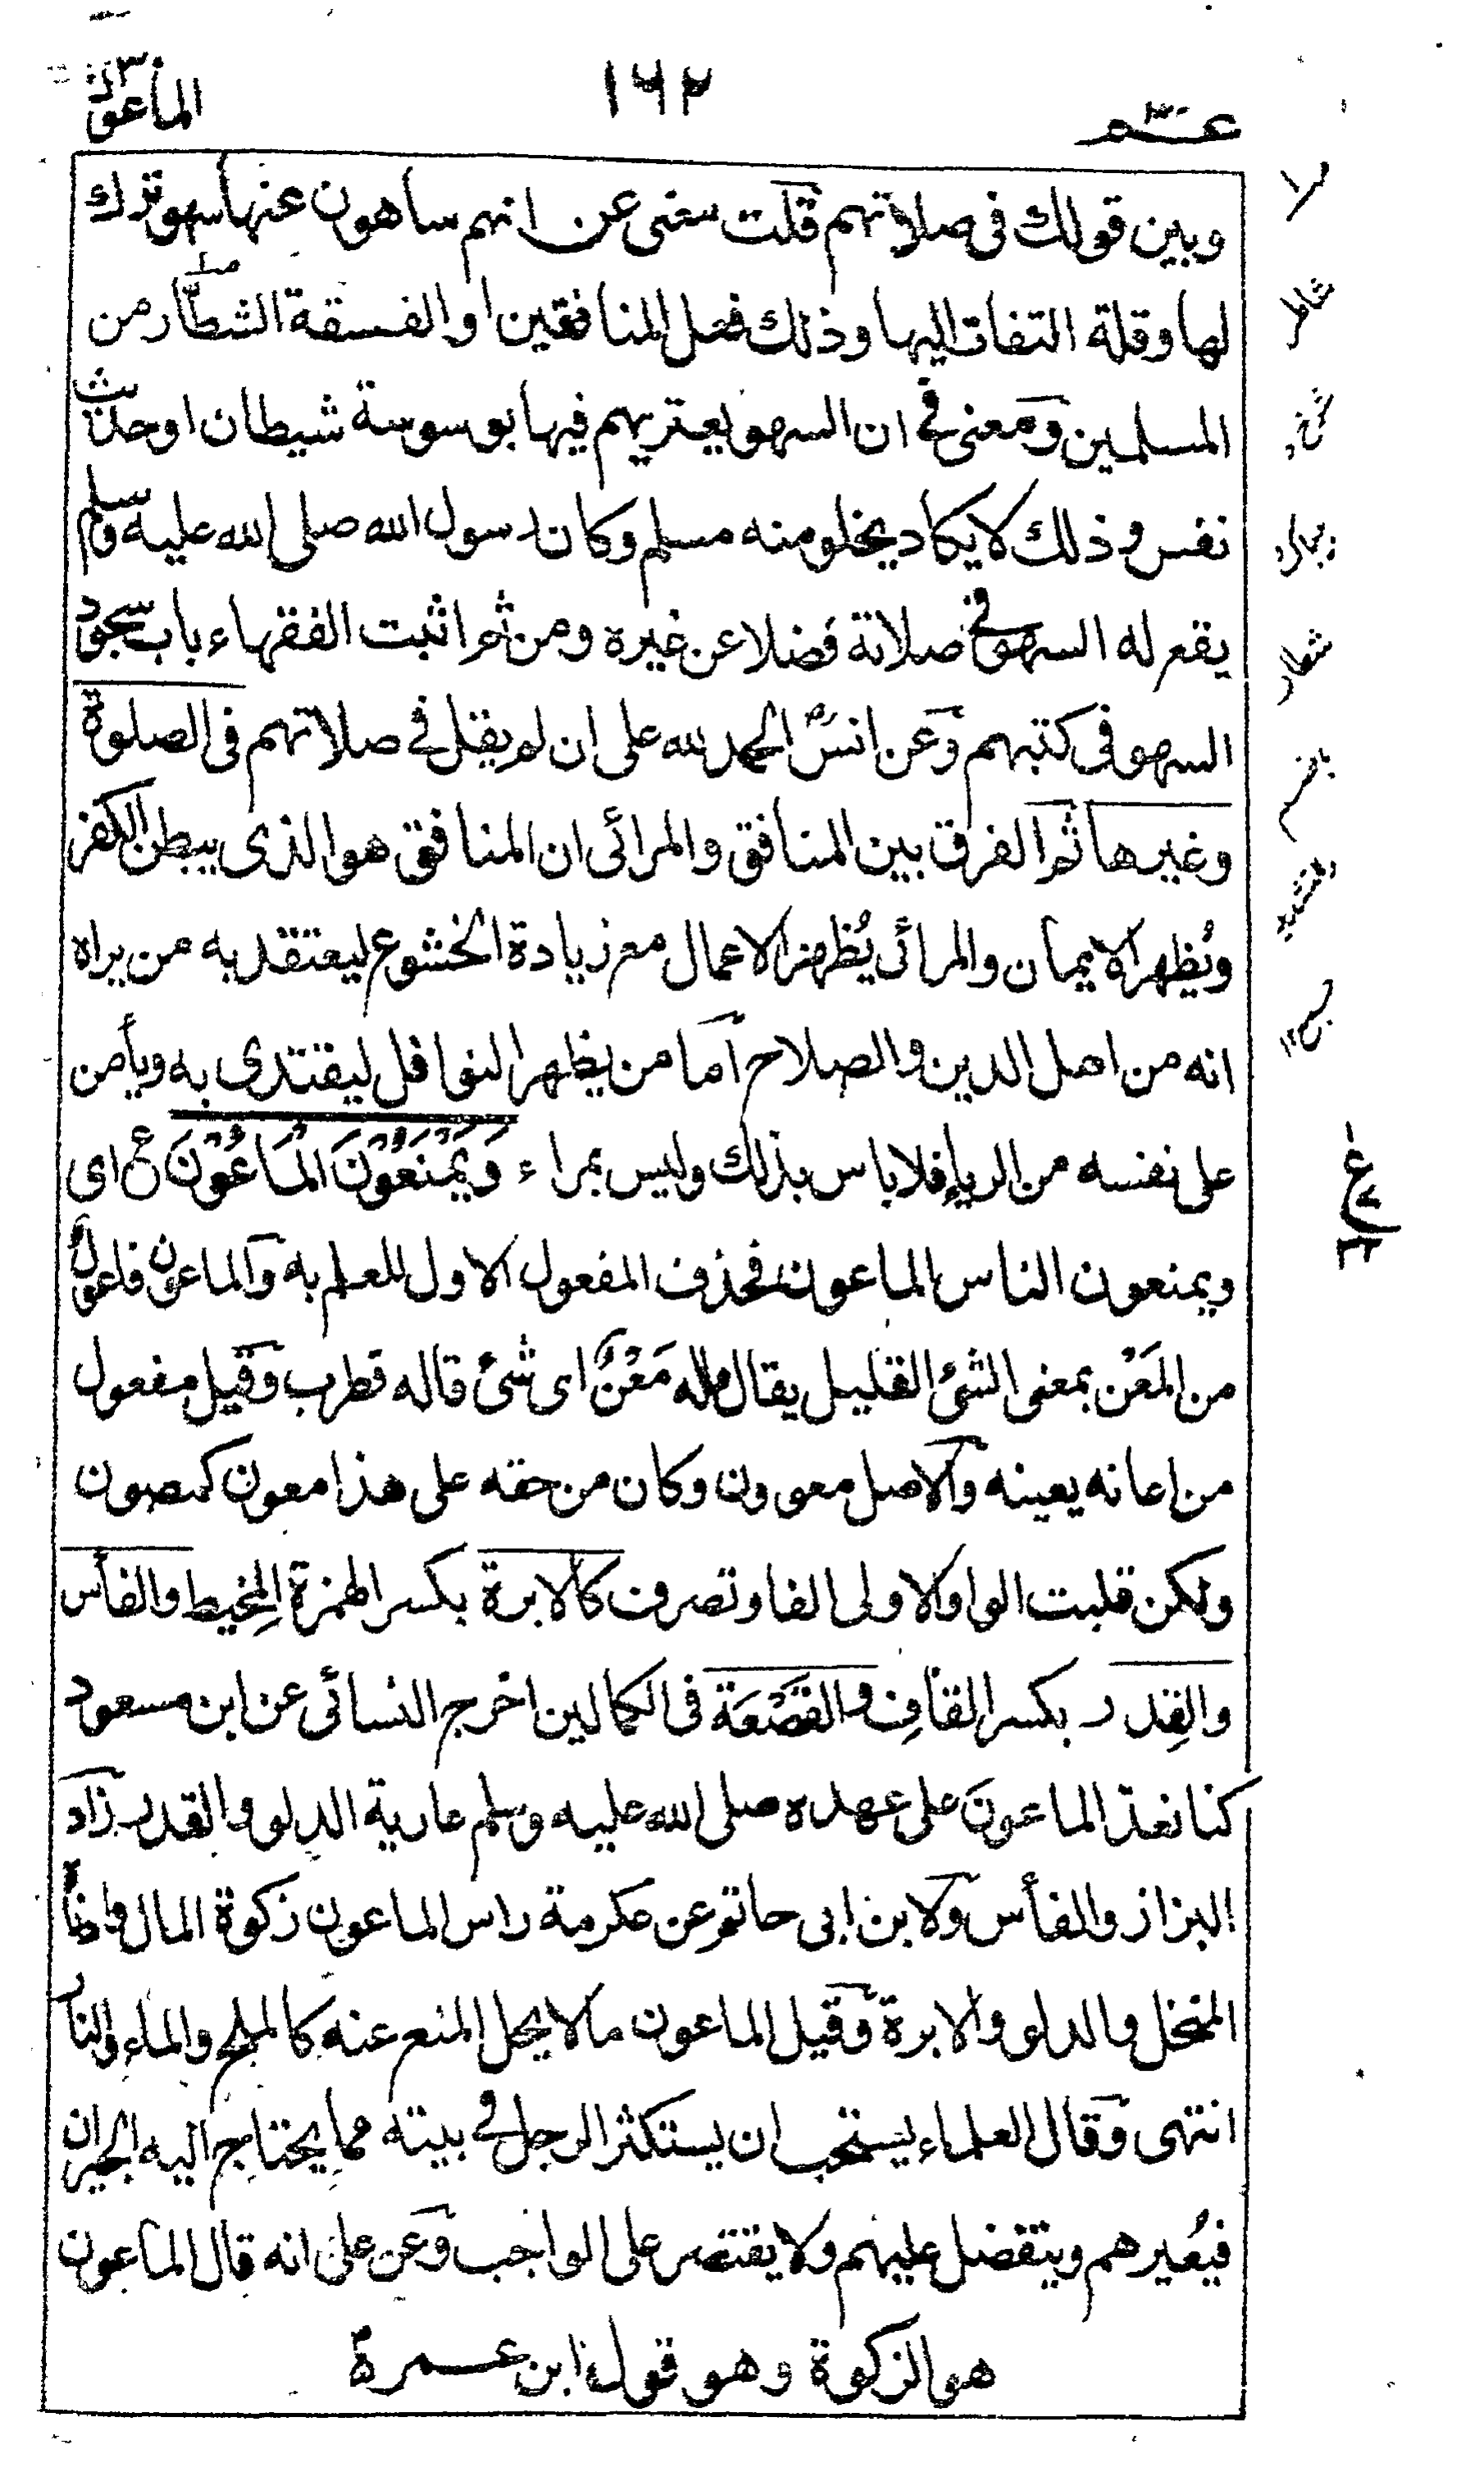 عـــم
١٦٢
الماعون
وبين قولك فى صلاتهم قلت معنى عن انهم ساهون عنها سهو ترك
لها وقلة التفات اليها وذلك فعل المنافقين او الفسقة الشطّار من
المسلمين ومعنى فى ان السهو يعتريهم فيها بوسوسة شيطان او حديث
نفس وذلك لا يكاد يخلو منه مسلم وكان رسول الله صلى الله عليه وسلم
يقع له السهو فى صلاته فضلا عن غيره ومن ثم اثبت الفقهاء باب سجود
السهو فى كتبهم وعن انس الحمد لله على ان لم يقل فى صلاتهم فى الصلوة
وغيرها ثم الفرق بين المنافق والمرائى ان المنافق هو الذى يبطن الكفر
ويُظهر الايمان والمرائى يُظهر الاعمال مع زيادة الخشوع ليعتقد به من يراه
انه من اهل الدين والصلاح اما من يظهر النوافل ليقتدى به ويأمن
على نفسه من الرياء فلا باس بذلك وليس بمراء وَيَمْنَعُوْنَ الْمَاعُوْنَ ع اى
ويمنعون الناس الماعون فحذف المفعول الاول للعلم به والماعون فاعولٌ
من المَعْن بمعنى الشئ القليل يقال ماله مَعْنٌ اى شئ قاله قطرب وقيل مفعول
من اعانه يعينه والاصل معوون وكان من حقه على هذا معون كمصون
ولكن قلبت الواو الاولى الفا وتصرف كالابرة بكسر الهمزة المِخيط والفأس
والقِدر بكسر القاف والقَصْعَة فى الكمالين اخرج النسائى عن ابن مسعود
كنا نعد الماعون على عهده صلى الله عليه وسلم عارية الدلو والقدر زاد
البزاز والفأس ولابن ابى حاتم عن عكرمة راس الماعون زكوة المال وادناه
المنخل والدلو والابرة وقيل الماعون ما لا يحل المنع عنه كالملح والماء والنار
انتهى وقال العلماء يستحب ان يستكثر الرجل فى بيته مما يحتاج اليه الجيران
فيُعيرهم ويتفضل عليهم ولا يقتصر على الواجب وعن على انه قال الماعون
هو الزكوة وهو قول ابن عـــمرة
شاطر